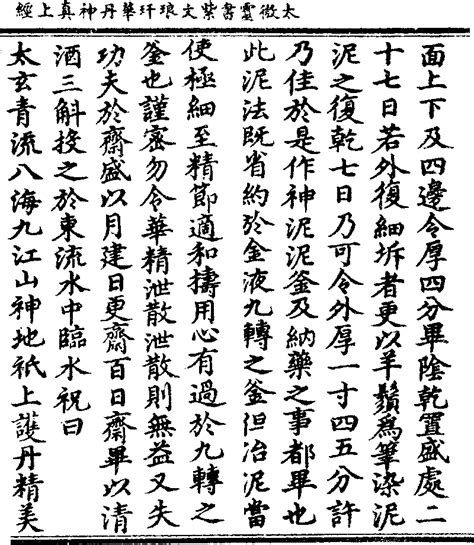 太微靈書紫文琅玕華丹神真上經
面上下及四邊令厚四分畢陰乾置盛處二
十七日若外復細坼者更以羊鬚為筆染泥
泥之復乾七日乃可令外厚一寸四五分許
乃佳於是作神泥泥釜及納藥之事都畢也
此泥法既省約於金液九轉之釜但冶泥當
使極細至精節適和擣用心有過於九轉之
釜也謹密勿令華精泄散泄散則無益又失
功夫於齋盛以月建日更齋百日齋畢以清
酒三斛投之於東流水中臨水祝曰
太玄青流八海九江山神地祇上護丹精美